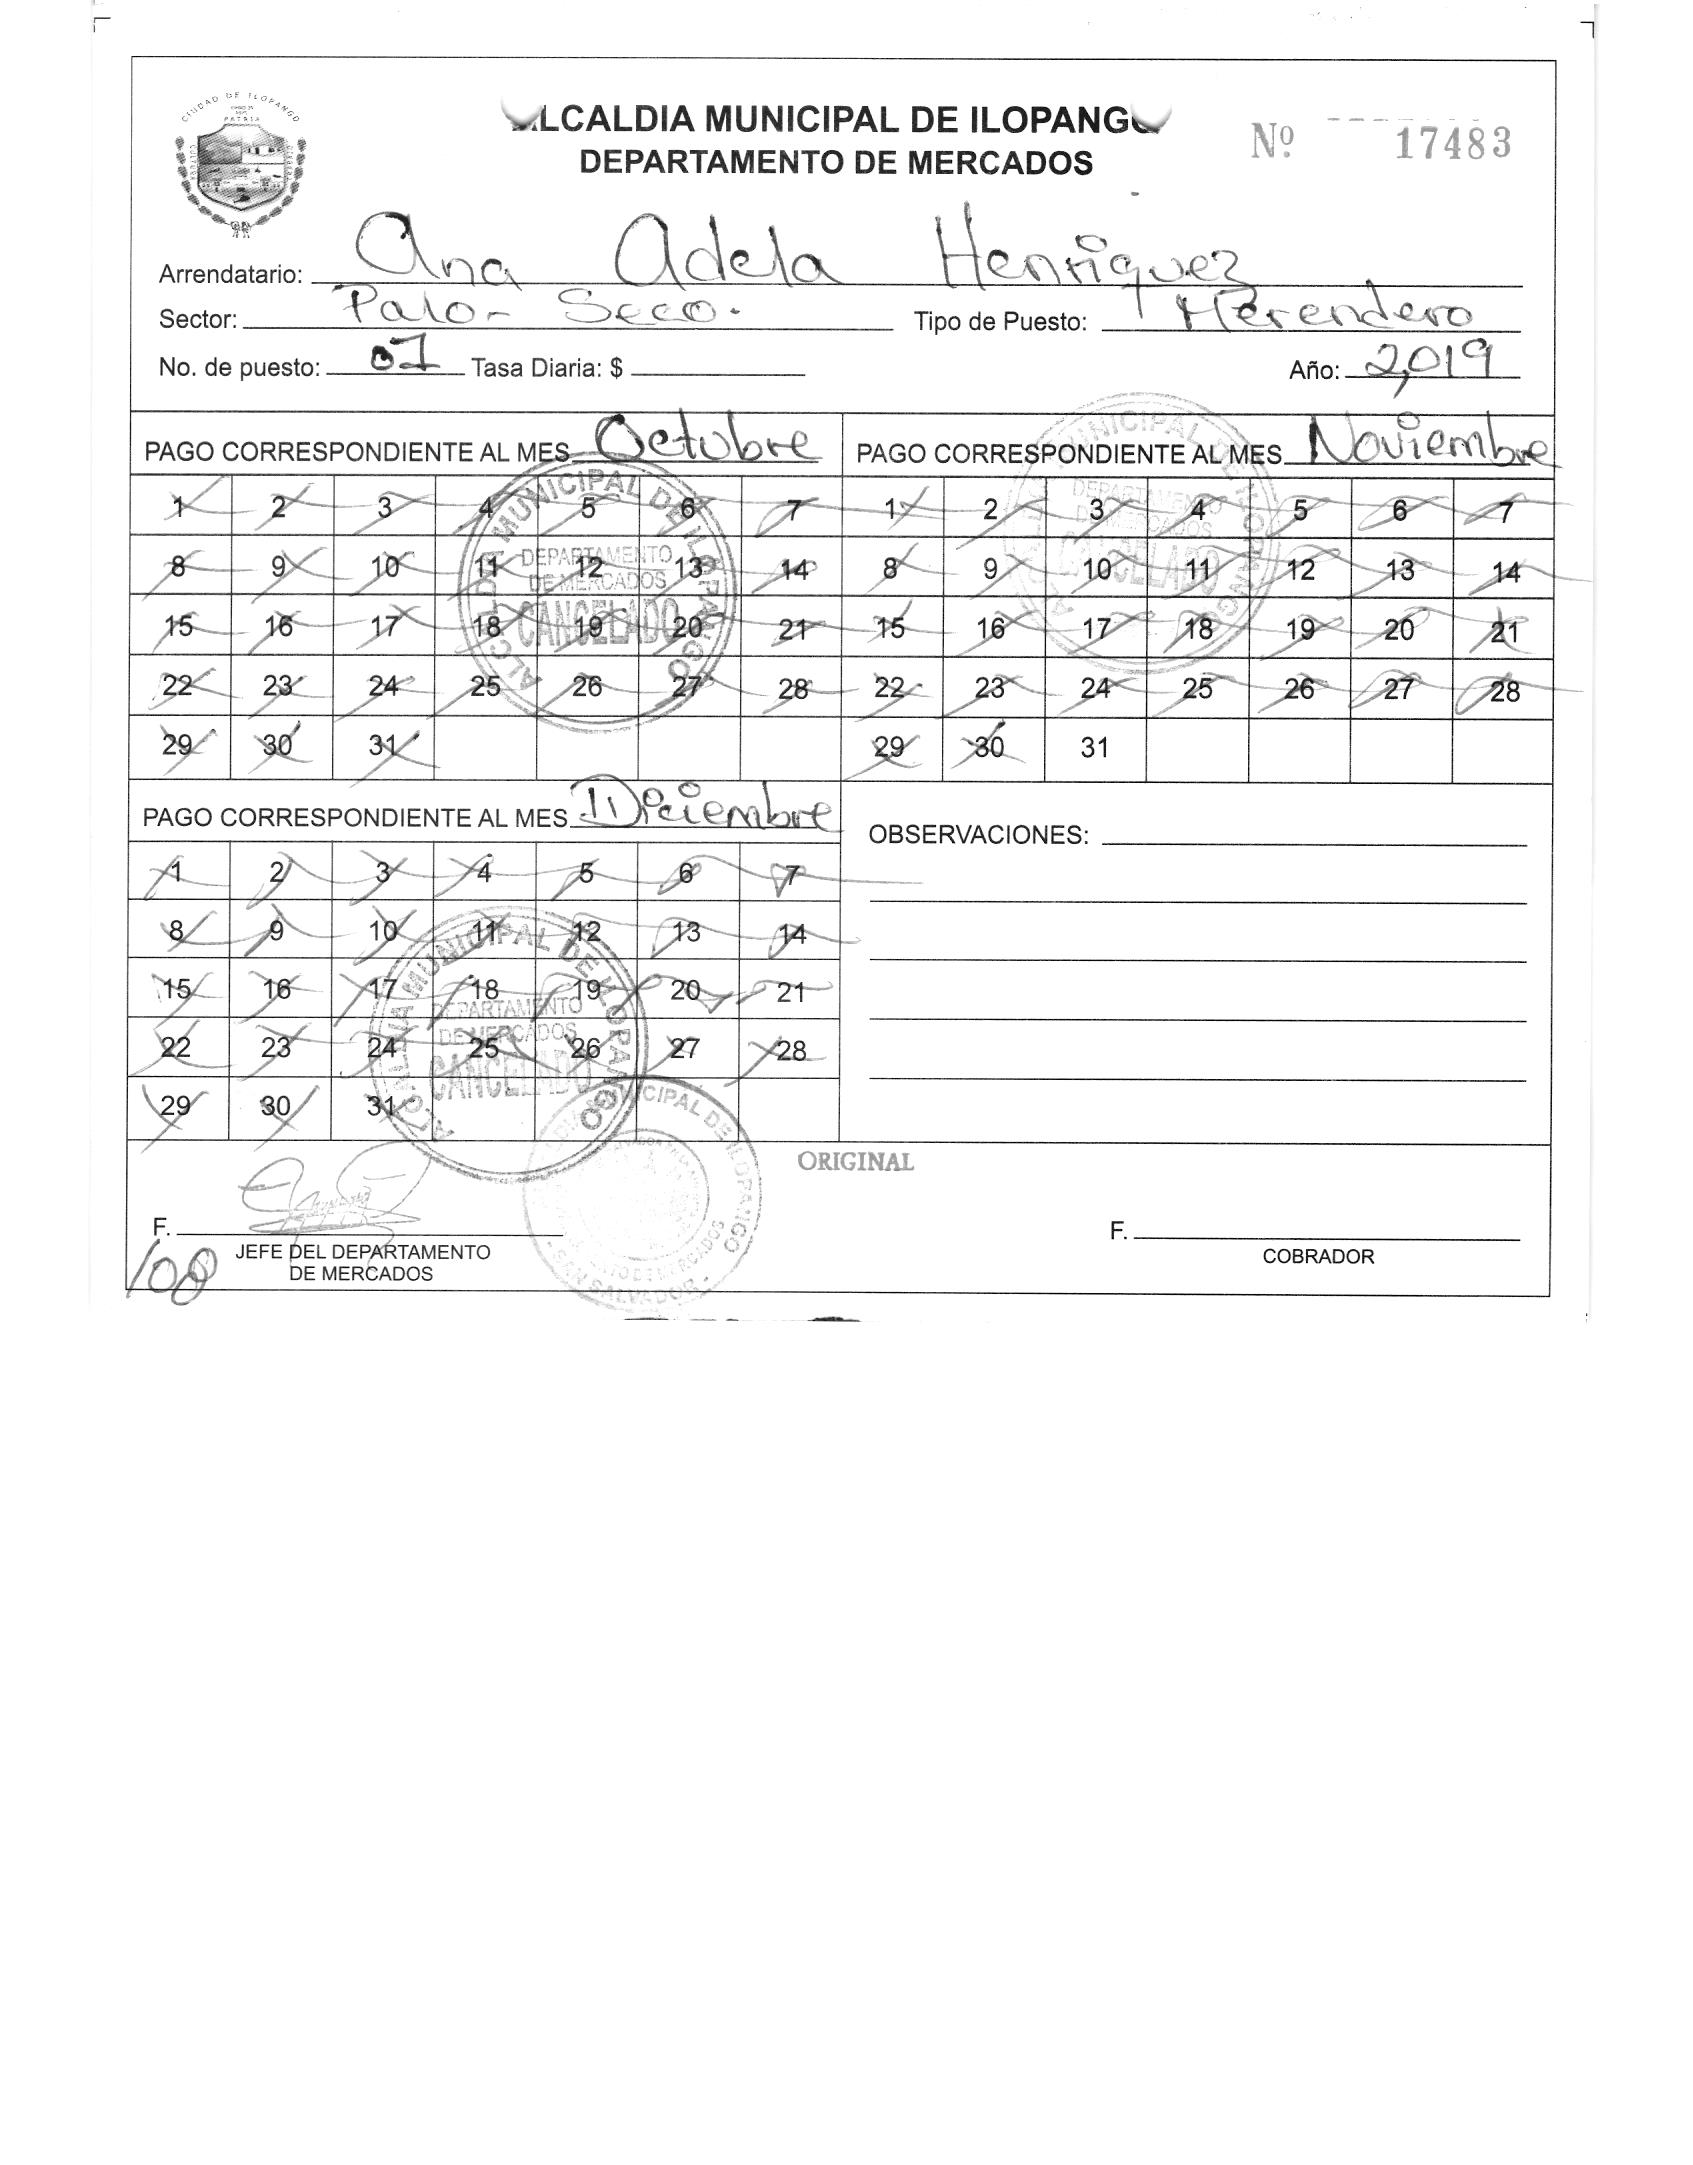 CIUDAD DE ILOPANGO
PATRIA
LCALDIA MUNICIPAL DE ILOPANGO
DEPARTAMENTO DE MERCADOS
Nº 17483
Arrendatario: Ana Adela Henriquez
Sector: Palo- Seco. Tipo de Puesto: Merendero
No. de puesto: 01 Tasa Diaria: $ Año: 2,019
PAGO CORRESPONDIENTE AL MES Octubre
1 2 3 4 5 6 7
8 9 10 11 12 13 14
15 16 17 18 19 20 21
22 23 24 25 26 27 28
29 30 31
ALCALDIA MUNICIPAL DE ILOPANGO
DEPARTAMENTO
DE MERCADOS
CANCELADO
PAGO CORRESPONDIENTE AL MES Noviembre
1 2 3 4 5 6 7
8 9 10 11 12 13 14
15 16 17 18 19 20 21
22 23 24 25 26 27 28
29 30 31
MUNICIPAL DE ILOPANGO
DEPARTAMENTO
DE MERCADOS
CANCELADO
PAGO CORRESPONDIENTE AL MES Diciembre
1 2 3 4 5 6 7
8 9 10 11 12 13 14
15 16 17 18 19 20 21
22 23 24 25 26 27 28
29 30 31
ALCALDIA MUNICIPAL DE ILOPANGO
DEPARTAMENTO
DE MERCADOS
CANCELADO
OBSERVACIONES:
ORIGINAL
MUNICIPAL DE ILOPANGO
DE MERCADOS
- SAN SALVADOR -
F.
JEFE DEL DEPARTAMENTO
DE MERCADOS
108
F.
COBRADOR